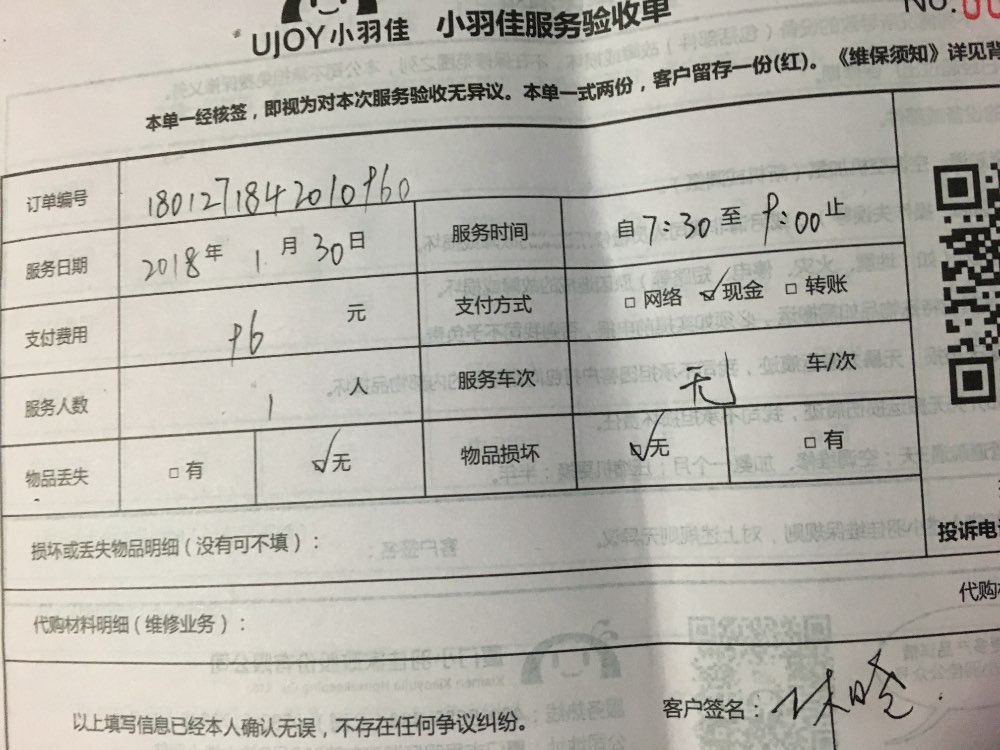 UJOY小羽佳 小羽佳服务验收单 NO.
本单一经核签，即视为对本次服务验收无异议。本单一式两份，客户留存一份(红)。《维保须知》详见背
订单编号 1801271842010960
服务日期 2018年 1月 30日 服务时间 自7:30至9:00止
支付费用 96 元 支付方式 □网络 ☑现金 □转账
服务人数 1 人 服务车次 无 车/次
物品丢失 □有 ☑无 物品损坏 ☑无 □有
损坏或丢失物品明细（没有可不填）：
投诉电
代购材料明细（维修业务）：
代购
以上填写信息已经本人确认无误，不存在任何争议纠纷。
客户签名：